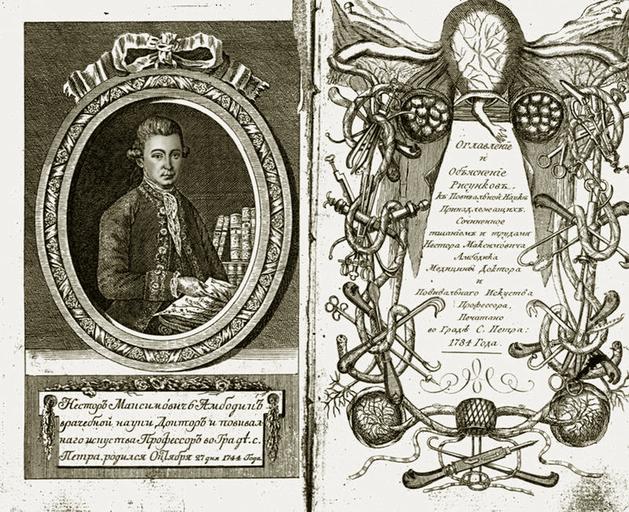 Несторъ Максимовичь Амбодикъ
врачебной науки Докторъ и повивал
наго искуства Профессоръ во Градѣ. с.
Петра, родился Октября 27 дня 1744 Года.
Оглавленіе
и
Объясненіе
Рисунковъ.
къ Повивальной Наукѣ
Принадлежащихъ.
Сочиненное
тщаніемъ и трудами
Нестора Максимовича
Амбодика
Медицины Доктора
и
Повивальнаго Искуства
Профессора,
Печатано
во Градѣ С. Петра:
1784 Года.